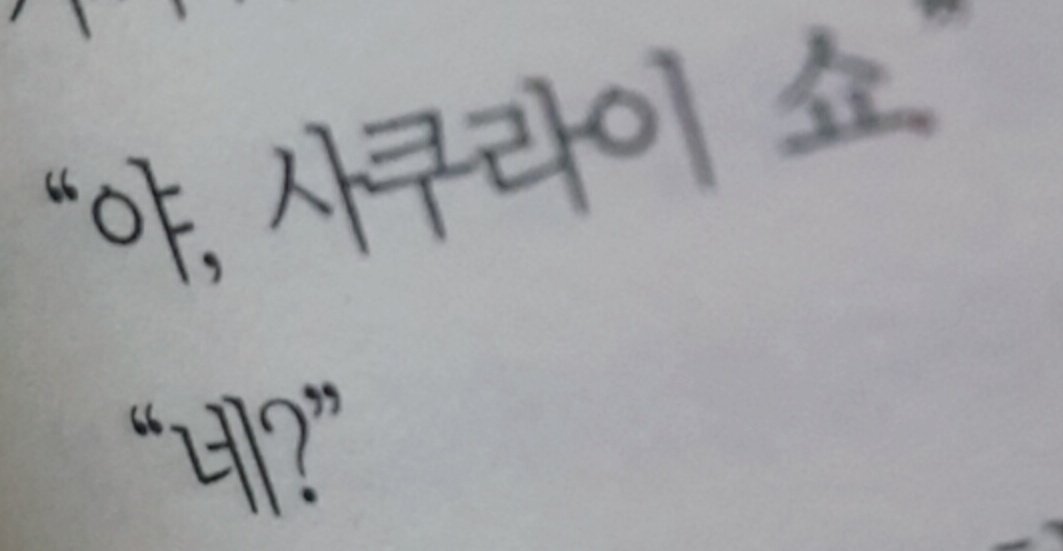 “야, 사쿠라이 쇼.”
“네?”